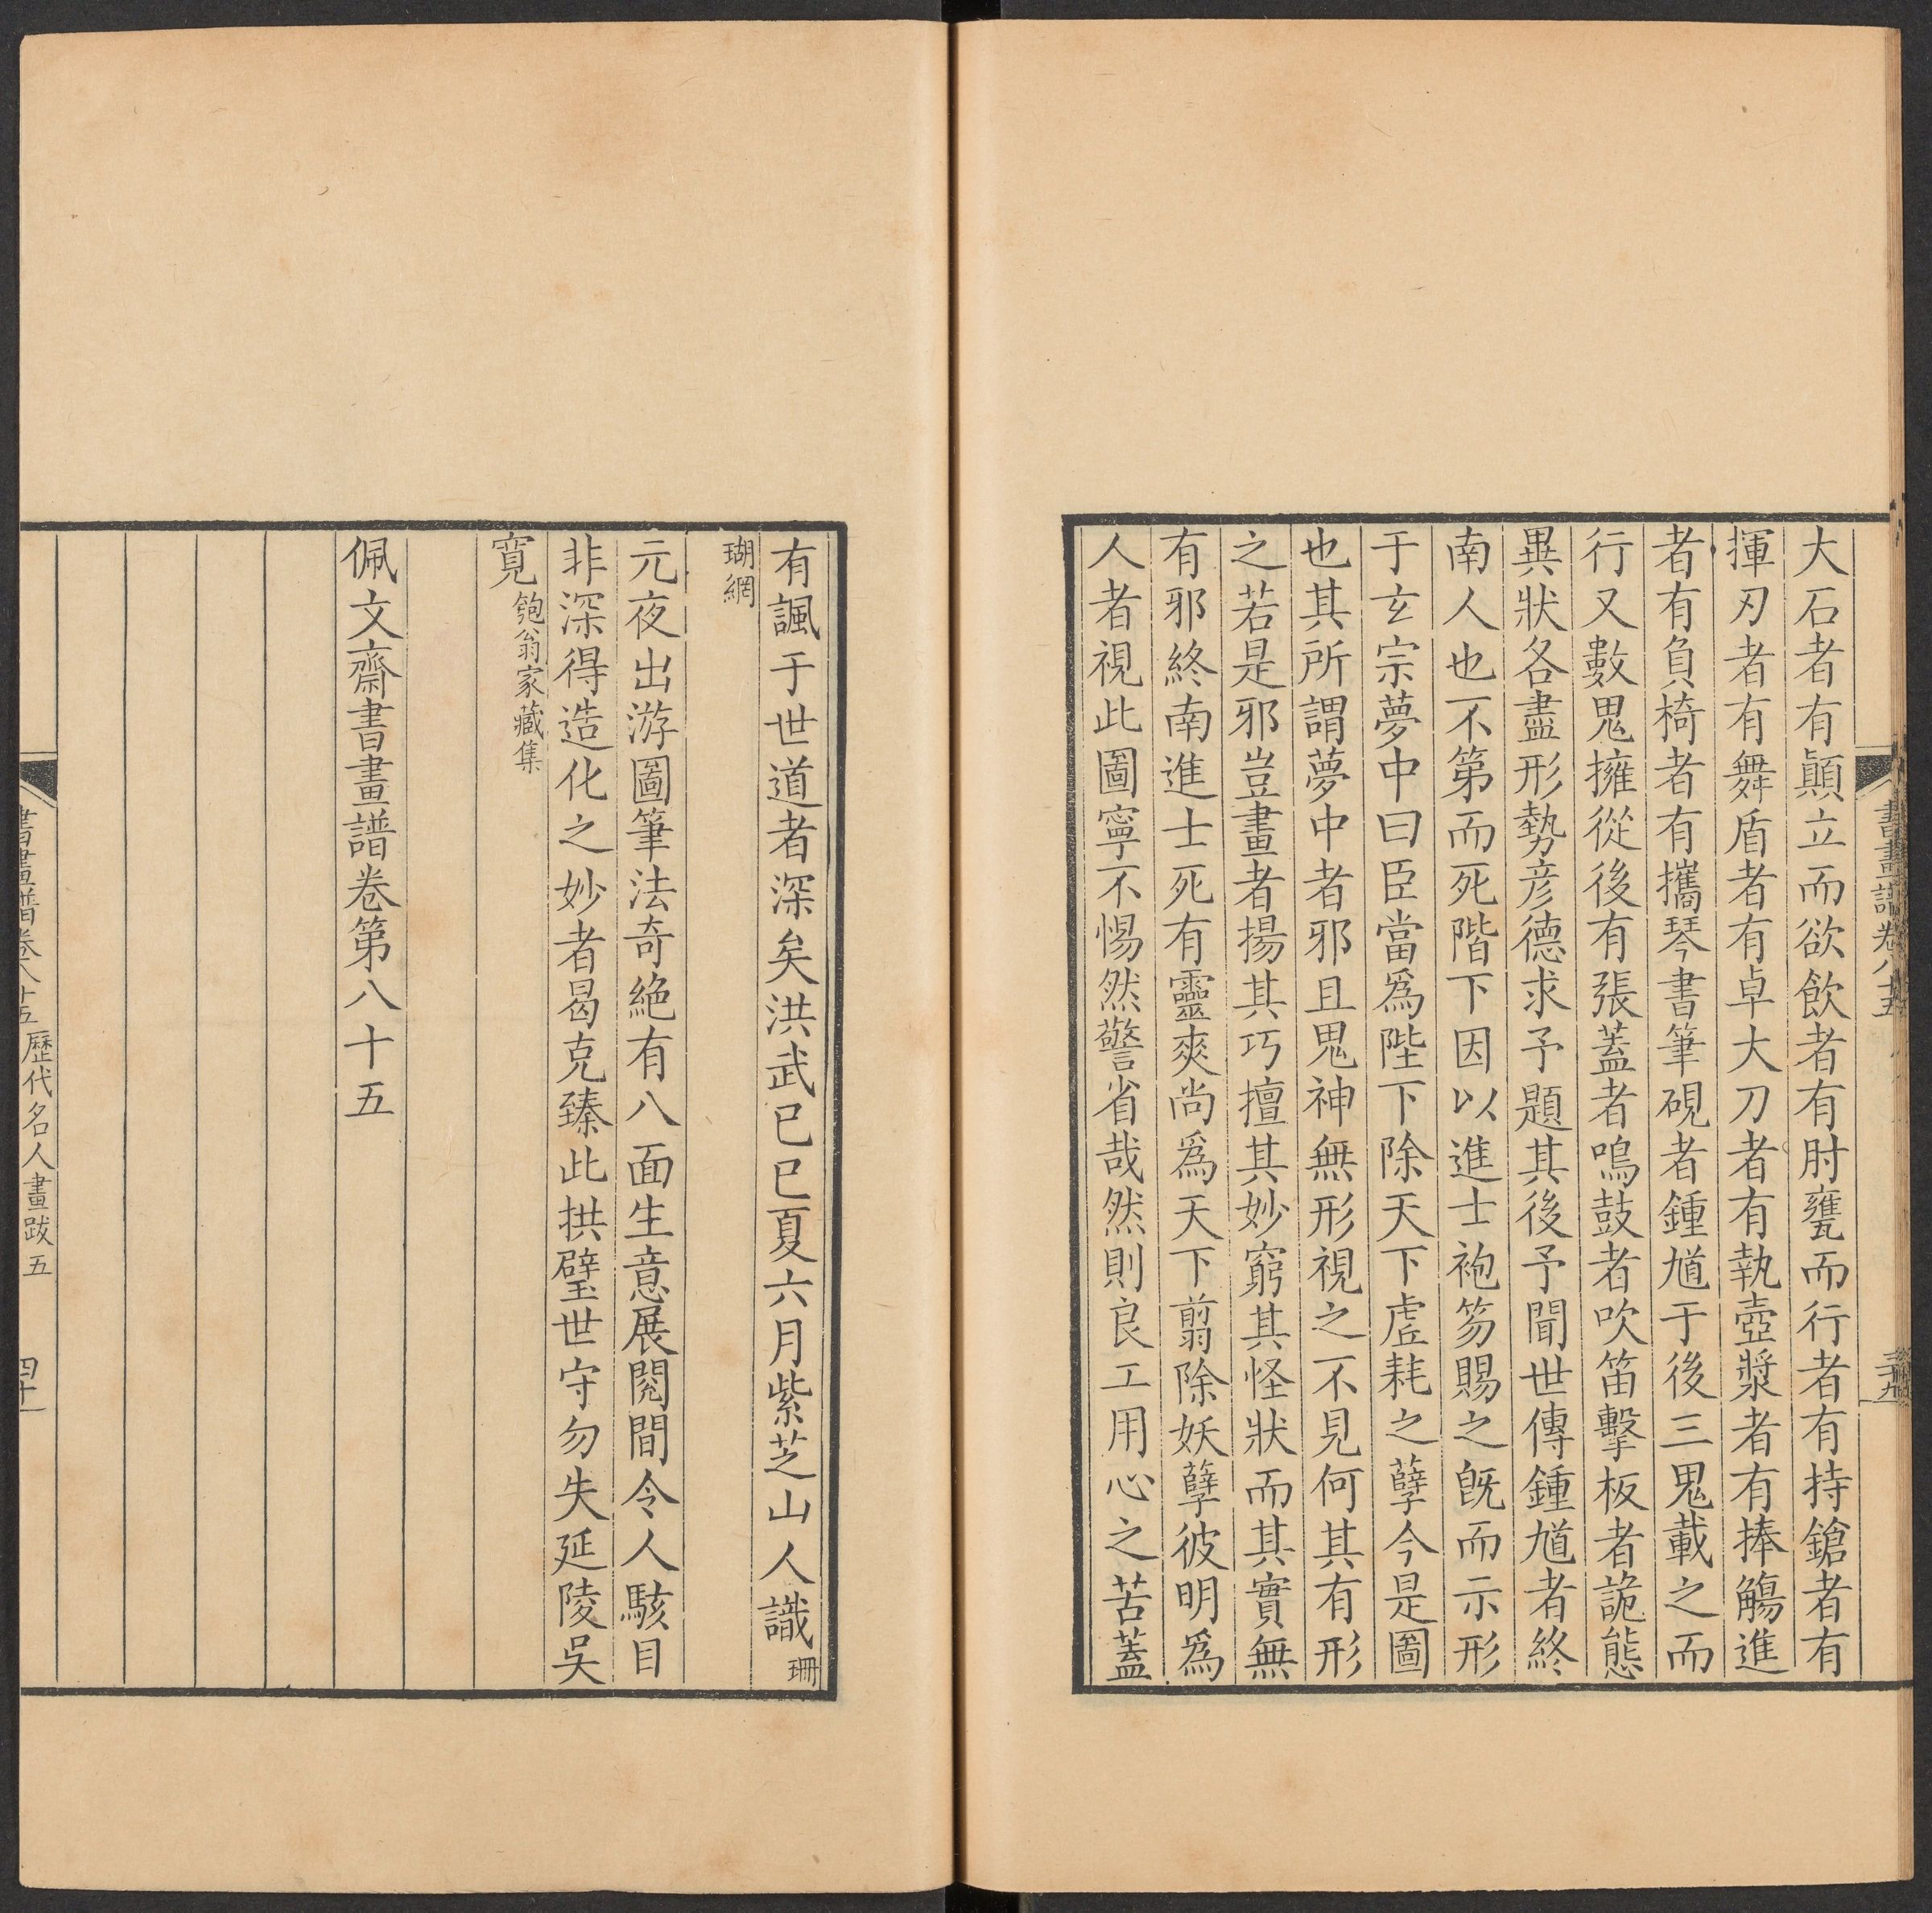 書畫譜卷八十五
三十九
大石者有顚立而欲飲者有肘甕而行者有持鎗者有
揮刃者有舞盾者有卓大刀者有執壺漿者有捧觴進
者有負椅者有攜琴書筆硯者鍾馗于後三鬼載之而
行又數鬼擁從後有張蓋者鳴鼓者吹笛擊板者詭態
異狀各盡形勢彦德求予題其後予聞世傳鍾馗者終
南人也不第而死階下因以進士袍笏賜之旣而示形
于玄宗夢中曰臣當爲陛下除天下虛耗之孽今是圖
也其所謂夢中者邪且鬼神無形視之不見何其有形
之若是邪豈畫者揚其巧擅其妙窮其怪狀而其實無
有邪終南進士死有靈爽尚爲天下翦除妖孽彼明爲
人者視此圖寧不惕然警省哉然則良工用心之苦蓋
有諷于世道者深矣洪武已巳夏六月紫芝山人識珊
瑚網
元夜出游圖筆法奇絶有八面生意展閱間令人駭目
非深得造化之妙者曷克臻此拱璧世守勿失延陵吳
寬匏翁家藏集
佩文齋書畫譜卷第八十五
書畫譜卷八十五 歷代名人畫跋五
四十